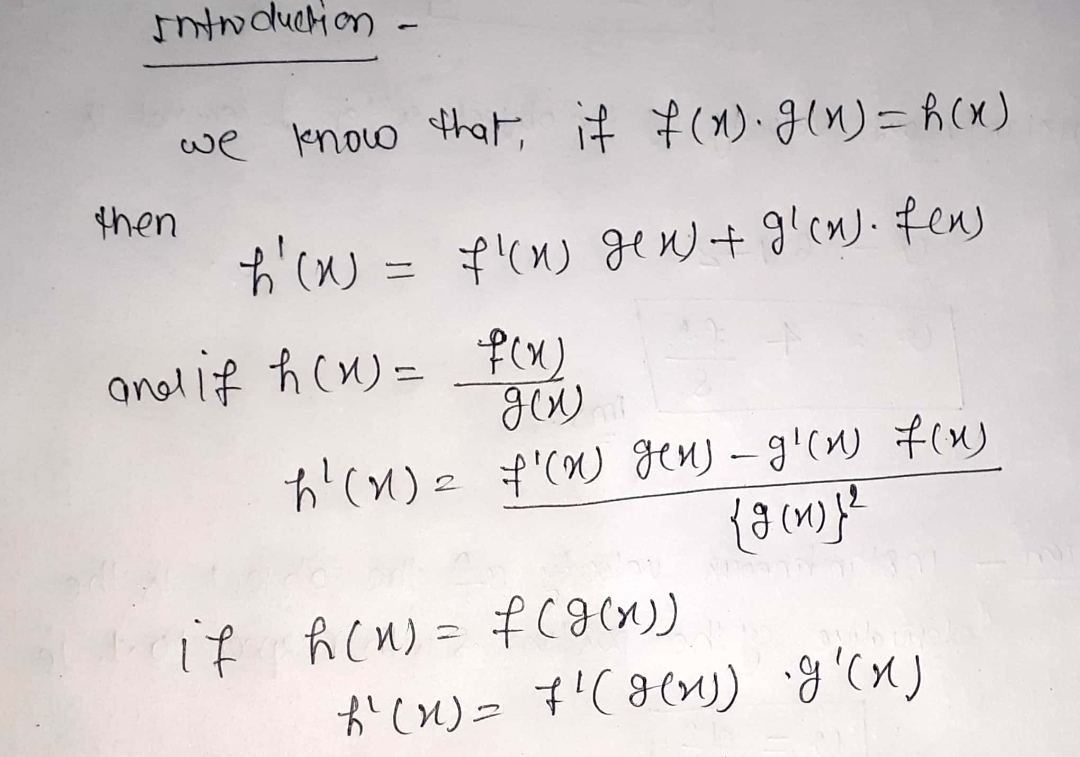 Introduction -
we know that, if f(x).g(x)=h(x)
then
h'(x) = f'(x) g(x) + g'(x). f(x)
and if h(x) = f(x)/g(x)
h'(x) = f'(x) g(x) - g'(x) f(x) / {g(x)}²
if h(x) = f(g(x))
h'(x) = f'(g(x)) .g'(x)